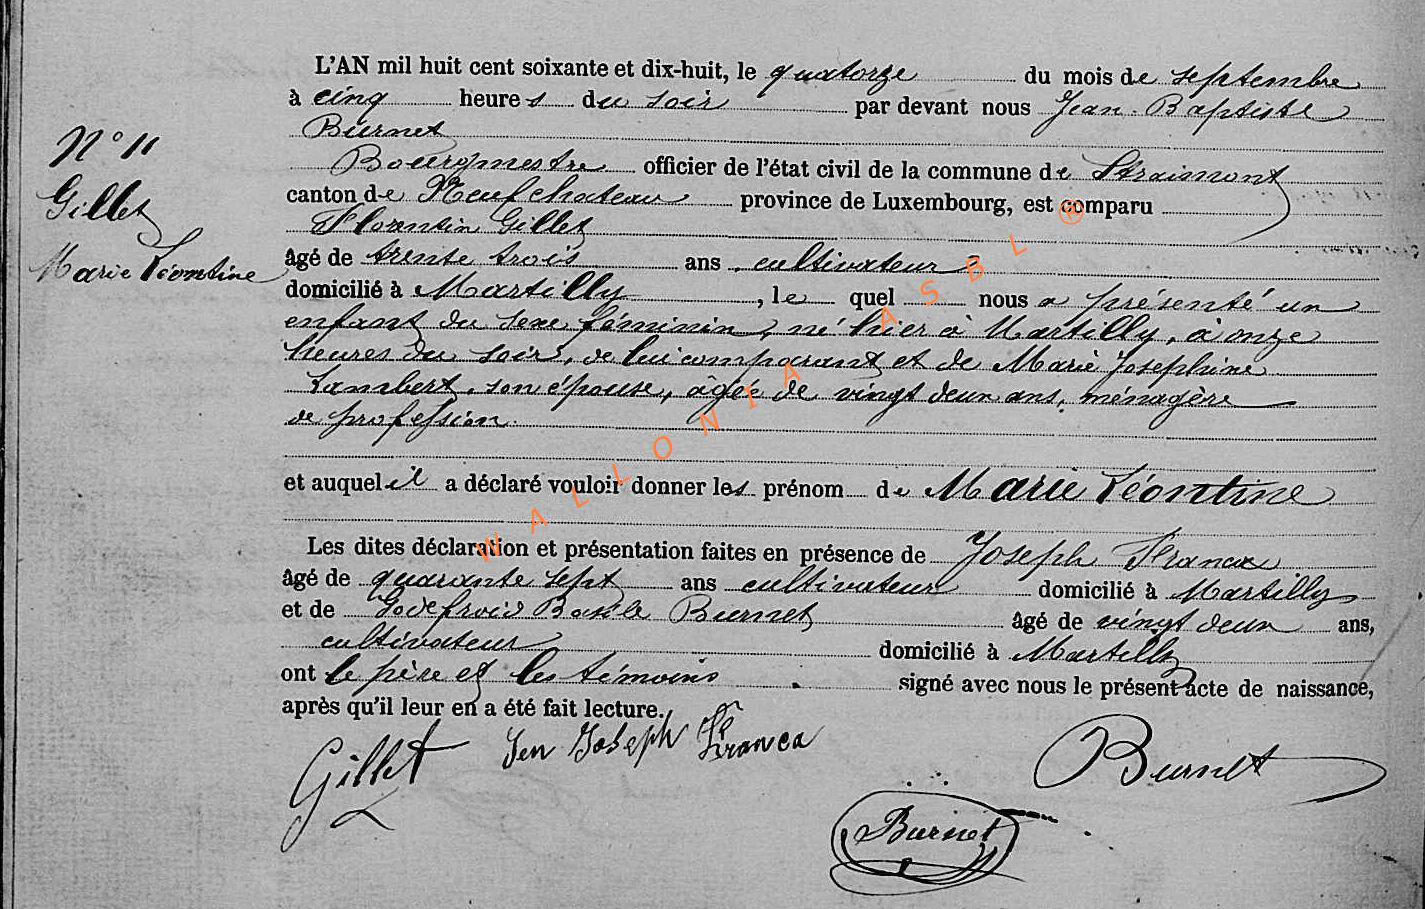 N° 11
Gillet
Marie Léontine
L'AN mil huit cent soixante et dix-huit, le quatorze du mois de septembre
à cinq heures du soir par devant nous Jean Baptiste
Burnet
Bourgmestre officier de l'état civil de la commune de Straimont
canton de Neufchateau province de Luxembourg, est comparu
Florentin Gillet
âgé de trente trois ans cultivateur
domicilié à Martilly, le quel nous a présenté un
enfant du sexe féminin, né hier à Martilly, à onze
heures du soir, de lui comparant et de Marie Josephine
Lambert, son épouse, agée de vingt deux ans, ménagère
de profession.
et auquel il a déclaré vouloir donner les prénom de Marie Léontine
Les dites déclaration et présentation faites en présence de Joseph Franca
âgé de quarante sept ans cultivateur domicilié à Martilly
et de Godefroid Basile Burnet âgé de vingt deux ans,
cultivateur domicilié à Martilly
ont le père et les témoins signé avec nous le présent acte de naissance,
après qu'il leur en a été fait lecture.
Gillet Jen Joseph Franca Burnet
Burnet
WALLONIA ASBL ®